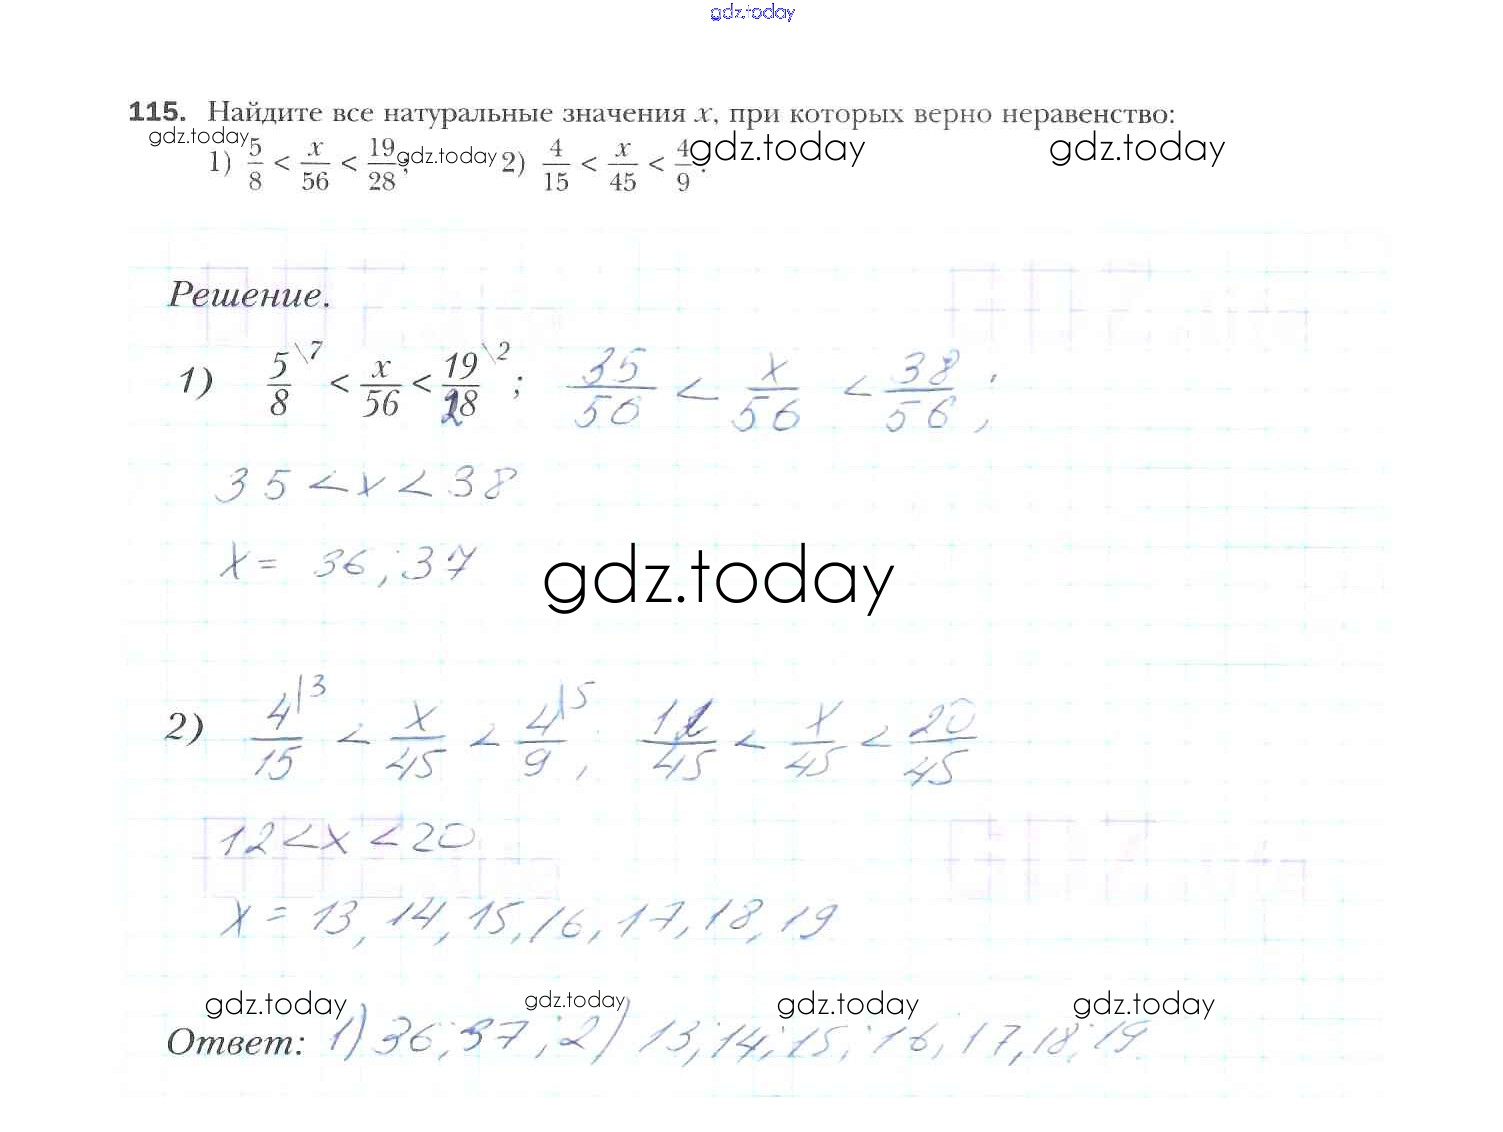 gdz.today
115. Найдите все натуральные значения x, при которых верно неравенство:
gdz.today gdz.today gdz.today gdz.today
1) 5/8 < x/56 < 19/28; 2) 4/15 < x/45 < 4/9.
Решение.
1) 5\7/8 < x/56 < 19\2/28; 35/56 < x/56 < 38/56;
35 < x < 38
x = 36; 37
gdz.today
2) 4|3/15 < x/45 < 4|5/9; 12/45 < x/45 < 20/45
12 < x < 20
x = 13, 14, 15, 16, 17, 18, 19
gdz.today gdz.today gdz.today gdz.today
Ответ: 1) 36; 37; 2) 13; 14; 15; 16, 17, 18; 19